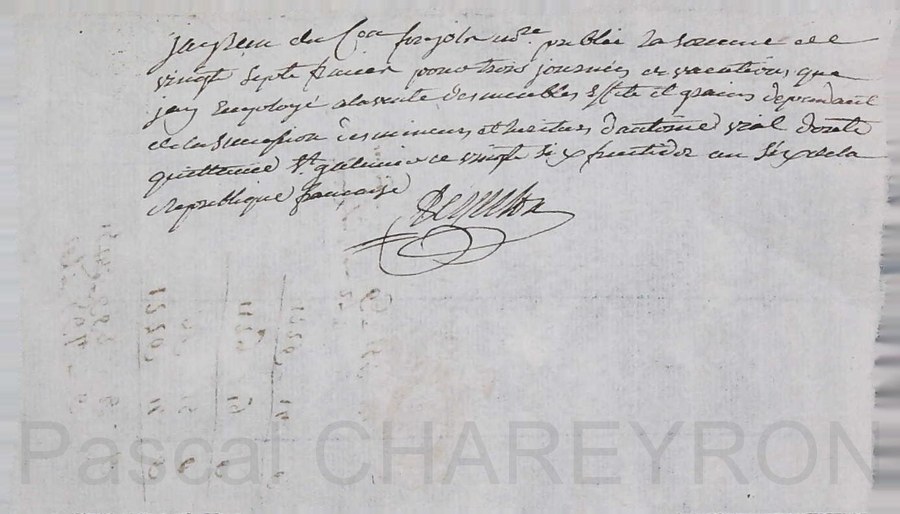 jay Reçu du Cen frejoln nore public la somme de
vingt sept francs pour trois journées et vacations que
jay Employé a la vente des meubles Effets et grains dependant
de la succession des mineurs et heritiers d'antoine vial dont
quittance St galmier ce vingt six fructidor an six de la
Republique française
Pascal CHAREYRON